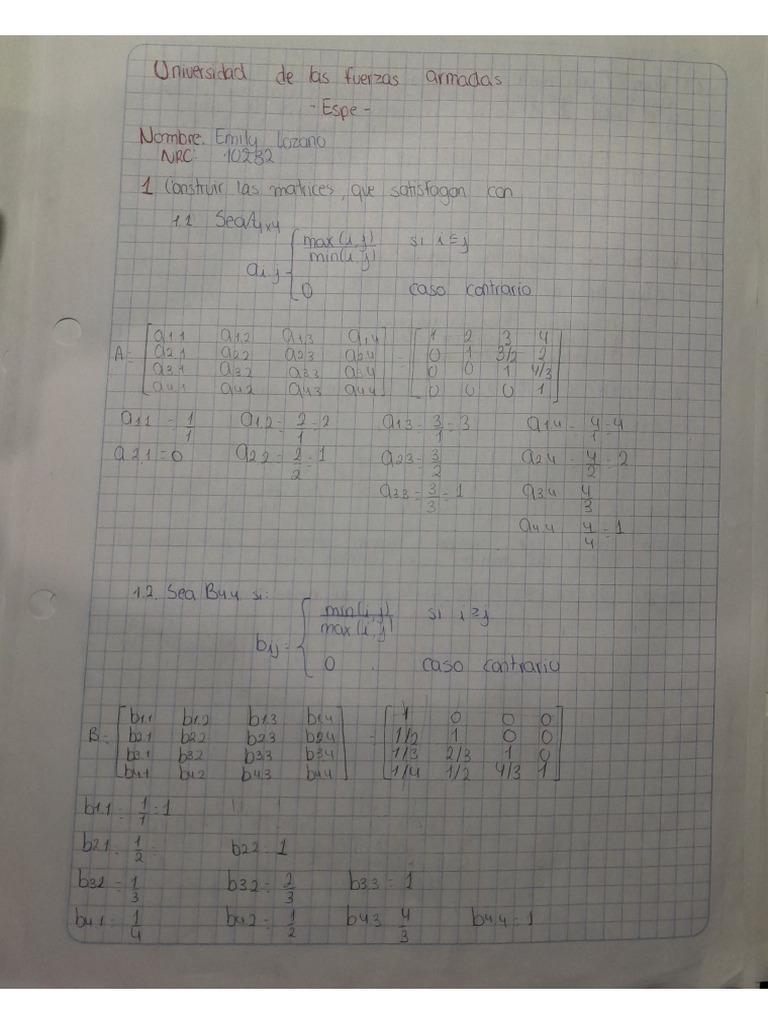 Universidad de las fuerzas armadas
- Espe -
Nombre. Emily Lozano
NRC: 10232
1 Construir las matrices, que satisfagan con
1.1 Sea A4x4
aij { max(i,j)/min(i,j) si i≤j
0 caso contrario
A= [ a11 a12 a13 a14 ] = [ 1 2 3 4 ]
[ a21 a22 a23 a24 ] [ 0 1 3/2 2 ]
[ a31 a32 a33 a34 ] [ 0 0 1 4/3 ]
[ a41 a42 a43 a44 ] [ 0 0 0 1 ]
a11 = 1/1 a12 = 2/1 = 2 a13 = 3/1 = 3 a14 = 4/1 = 4
a21 = 0 a22 = 2/2 = 1 a23 = 3/2 a24 = 4/2 = 2
a33 = 3/3 = 1 a34 4/3
a44 4/4 = 1
1.2. Sea B44 si:
bij = { min(i,j)/max(i,j) si i≥j
0 caso contrario
B= [ b11 b12 b13 b14 ] = [ 1 0 0 0 ]
[ b21 b22 b23 b24 ] [ 1/2 1 0 0 ]
[ b31 b32 b33 b34 ] [ 1/3 2/3 1 0 ]
[ b41 b42 b43 b44 ] [ 1/4 1/2 4/3 1 ]
b11 = 1/1 = 1
b21 = 1/2 b22 = 1
b32 = 1/3 b32 = 2/3 b33 = 1
b41 = 1/4 b42 = 1/2 b43 4/3 b44 = 1